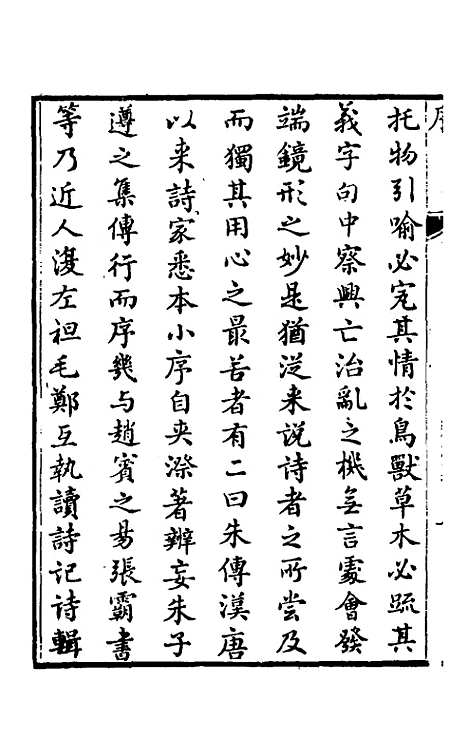 序
托物引喻必究其情於鳥獸草木必疏其
義字句中察興亡治亂之機無言處會發
端鏡形之妙是猶從来說詩者之所嘗及
而獨其用心之最苦者有二曰朱傳漢唐
以来詩家悉本小序自夾漈著辨妄朱子
遵之集傳行而序幾与趙賓之易張霸書
等乃近人漫左袒毛鄭互執讀詩記詩輯